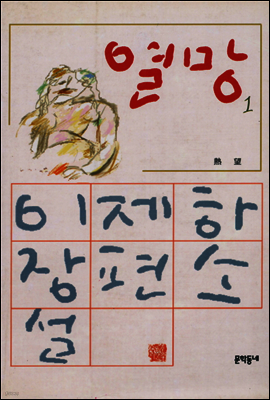 열망
1
熱望
이제하
장편소
설
문학동네